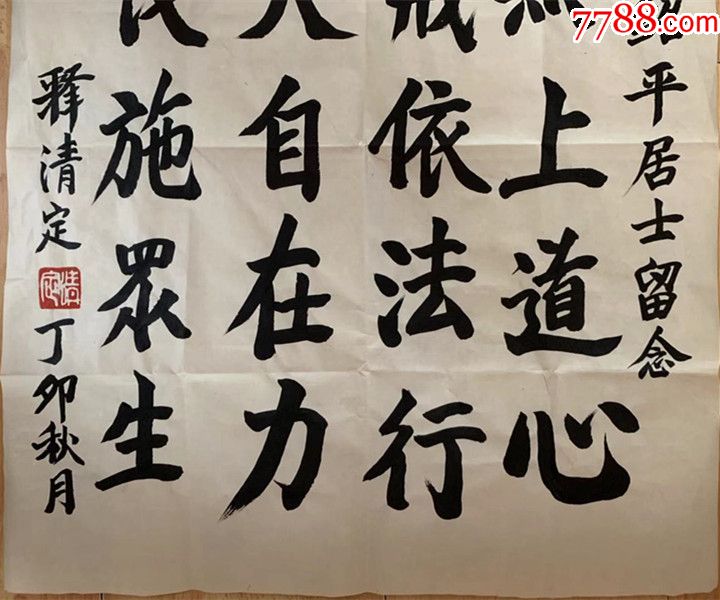 7788.com
平居士留念
上道心
依法行
自在力
施眾生
釋清定
清定
丁卯秋月